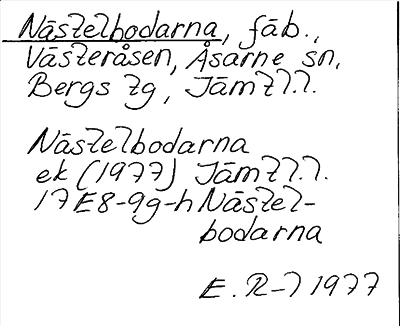 Nästelbodarna, fäb.,
Västeråsen, Åsarne sn,
Bergs tg, Jämtl.
Nästelbodarna
ek (1977) Jämtl.
17E8-9g-h Nästel-
bodarna
E. R-l 1977